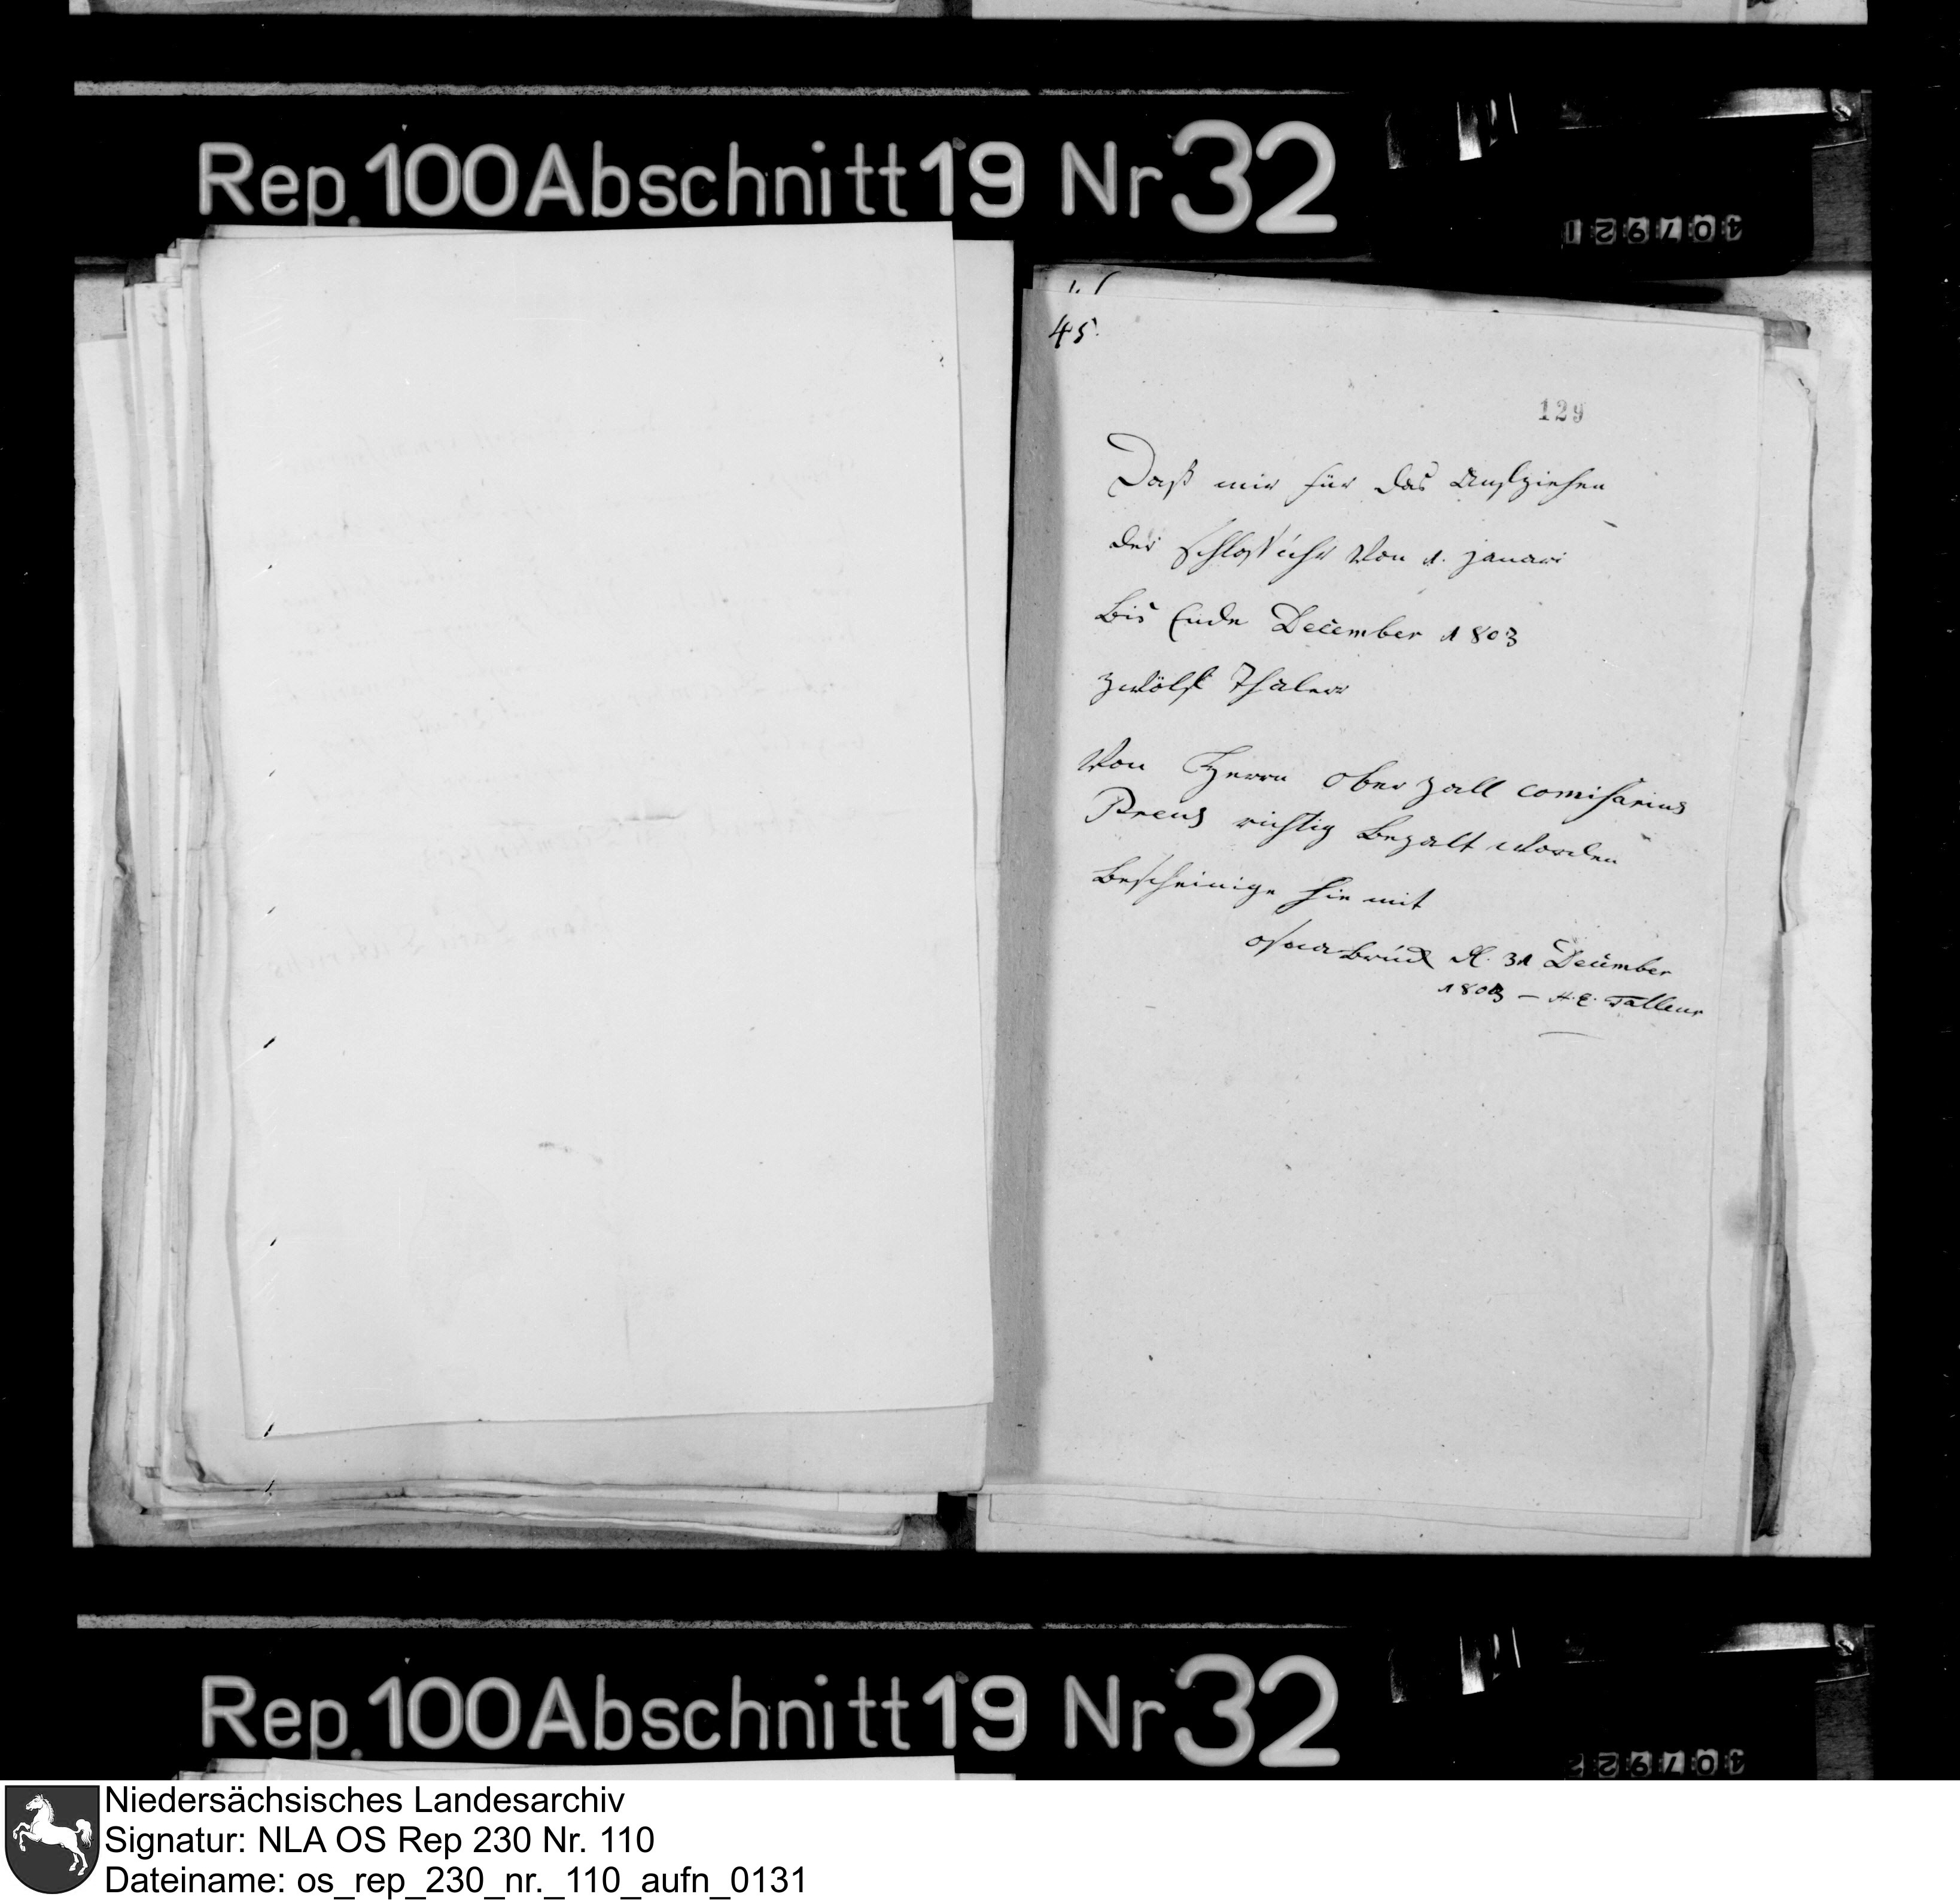 Rep. 100 Abschnitt 19 Nr 32
45.
129
Daß mir für das Aufziehen
der schlos uhr Von 1. januari
bis Ende December 1803
zwölf Thaler
Von Herrn ober zall comisarius
Preus richtig bezalt worden
bescheinige hie mit
osnabrück d. 31 December
1803 – H. E. Talleur
Rep. 100 Abschnitt 19 Nr 32
Niedersächsisches Landesarchiv
Signatur: NLA OS Rep 230 Nr. 110
Dateiname: os_rep_230_nr._110_aufn_0131